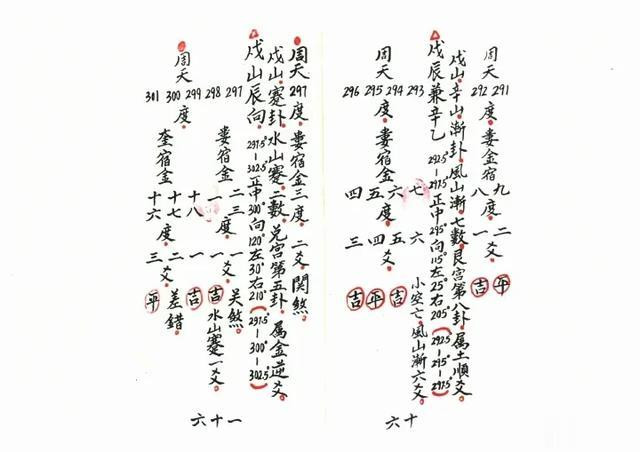 周天 291 292 度。婁金宿九八度。二一爻。平吉
戌山辛山漸卦。風山漸七數。艮宮第八卦。属土順爻。
戌辰兼辛乙 292.5°－297.5°正中295°向115°左25°右205°（292.5－295－297.5）
周天 293 294 295 296 度。婁宿金七六五四度。六五四三爻。小空亡。風山漸六爻。吉平吉
六十
周天297度。婁宿金三度。二爻。関煞。
戌山蹇卦。水山蹇二數。兌宮第五卦。属金逆爻。
戌山辰向。297.5°－302.5°正中300°向120°左30°右210°（297.5°－300°－302.5°）
297 298 婁宿金二三度。一一爻。关煞。吉水山蹇一爻。
周天 299 300 301 度。奎宿金十八十七十六度。一二三爻。吉差錯。平
六十一